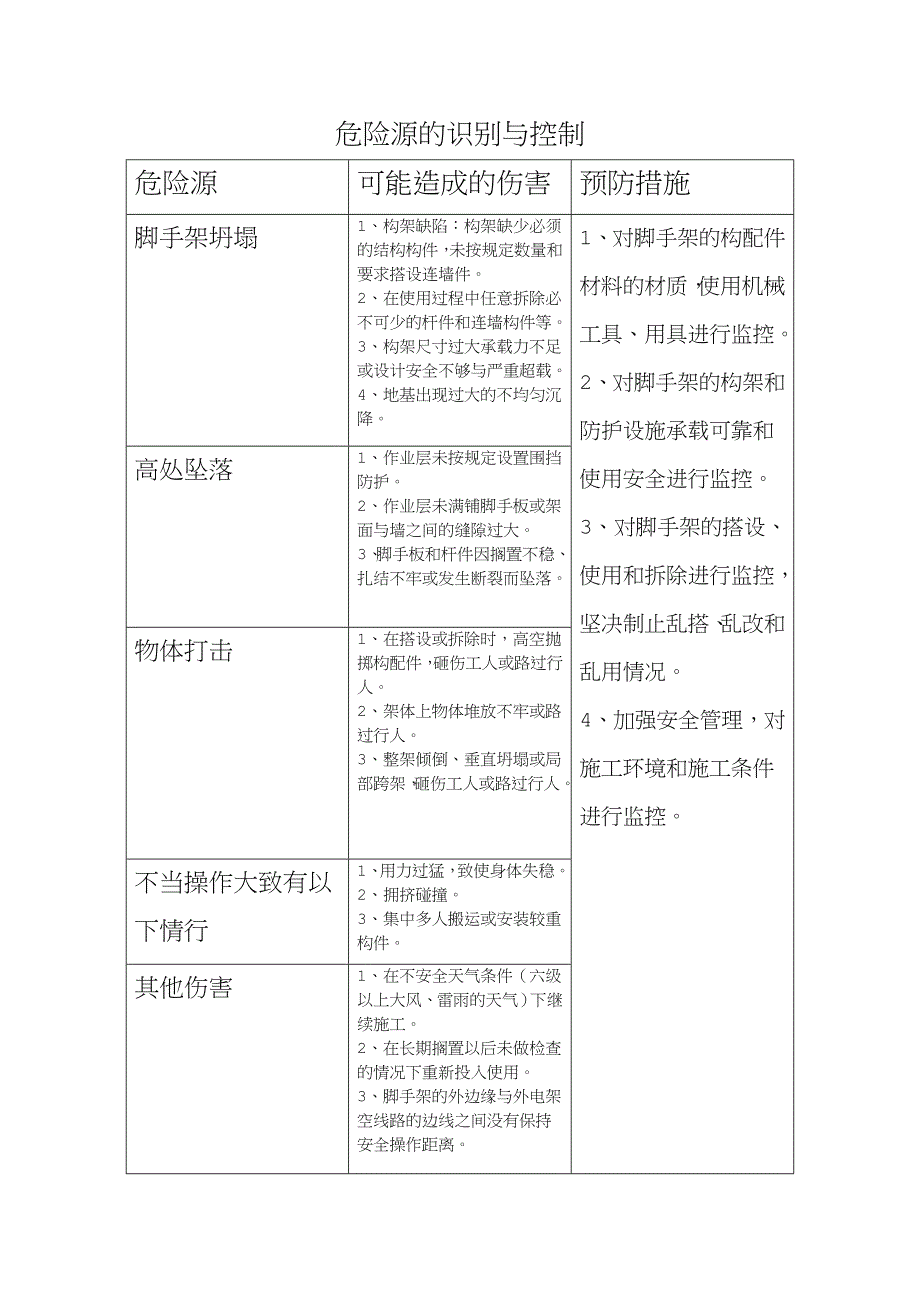 危险源的识别与控制
危险源
可能造成的伤害
预防措施
脚手架坍塌
1、构架缺陷：构架缺少必须
的结构构件，未按规定数量和
要求搭设连墙件。
2、在使用过程中任意拆除必
不可少的杆件和连墙构件等。
3、构架尺寸过大承载力不足
或设计安全不够与严重超载。
4、地基出现过大的不均匀沉
降。
1、对脚手架的构配件
材料的材质，使用机械
工具、用具进行监控。
2、对脚手架的构架和
防护设施承载可靠和
使用安全进行监控。
3、对脚手架的搭设、
使用和拆除进行监控，
坚决制止乱搭、乱改和
乱用情况。
4、加强安全管理，对
施工环境和施工条件
进行监控。
高处坠落
1、作业层未按规定设置围挡
防护。
2、作业层未满铺脚手板或架
面与墙之间的缝隙过大。
3、脚手板和杆件因搁置不稳、
扎结不牢或发生断裂而坠落。
物体打击
1、在搭设或拆除时，高空抛
掷构配件，砸伤工人或路过行
人。
2、架体上物体堆放不牢或路
过行人。
3、整架倾倒、垂直坍塌或局
部跨架，砸伤工人或路过行人。
不当操作大致有以
下情行
1、用力过猛，致使身体失稳。
2、拥挤碰撞。
3、集中多人搬运或安装较重
构件。
其他伤害
1、在不安全天气条件（六级
以上大风、雷雨的天气）下继
续施工。
2、在长期搁置以后未做检查
的情况下重新投入使用。
3、脚手架的外边缘与外电架
空线路的边线之间没有保持
安全操作距离。